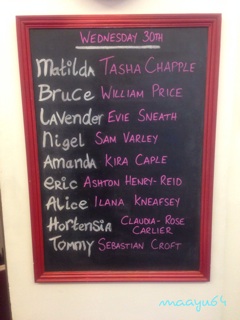 WEDNESDAY 30TH
Matilda TASHA CHAPPLE
Bruce WILLIAM PRICE
LAVeNDeR EVIE SNEATH
Nigel SAM VARLEY
Amanda KIRA CAPLE
eric ASHTON HENRY-REID
Alice ILANA KNEAFSEY
Hortensia CLAUDIA-ROSE
CARLIER
Tommy SEBASTIAN CROFT
maayu64